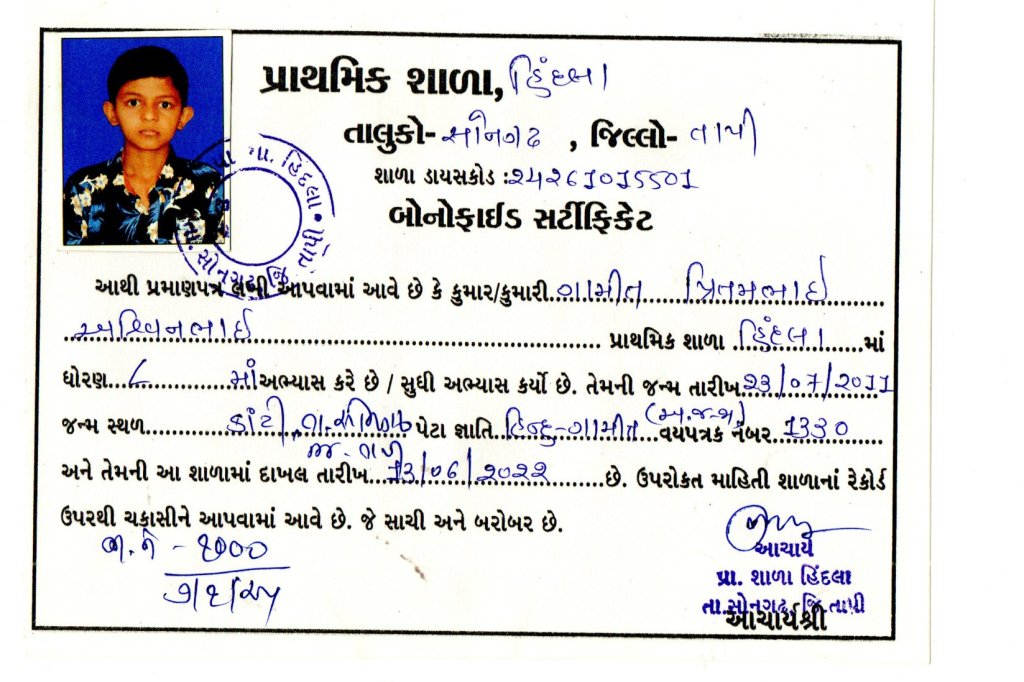 પ્રાથમિક શાળા, હિંદલા
તાલુકો- સોનગઢ , જિલ્લો- તાપી
શાળા ડાયસકોડ : ૨4261015501
બોનોફાઈડ સર્ટીફિકેટ
પ્રા. શા. હિંદલા • તા. સોનગઢ જિ. તાપી
આથી પ્રમાણપત્ર લખી આપવામાં આવે છે કે કુમાર/કુમારી ગામીત પ્રિતમભાઈ
અશ્વિનભાઈ પ્રાથમિક શાળા હિંદલા માં
ધોરણ ૮ માં અભ્યાસ કરે છે / સુધી અભ્યાસ કર્યો છે. તેમની જન્મ તારીખ ૨3/07/૨011
જન્મ સ્થળ તા. સોનગઢ પેટા જ્ઞાતિ હિન્દુ-ગામીત (અ.જ.જા) વયપત્રક નંબર 1330
જિ. તાપી
અને તેમની આ શાળામાં દાખલ તારીખ 13/06/૨0૨૨ છે. ઉપરોક્ત માહિતી શાળાનાં રેકોર્ડ
ઉપરથી ચકાસીને આપવામાં આવે છે. જે સાચી અને બરોબર છે.
આચાર્ય
પ્રા. શાળા હિંદલા
તા.સોનગઢ, જિ.તાપી
આચાર્યશ્રી